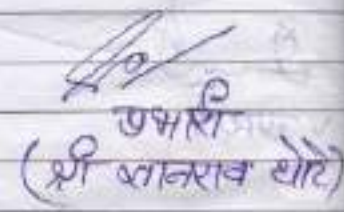 प्रभारी
(श्री ज्ञानराव धोटे)